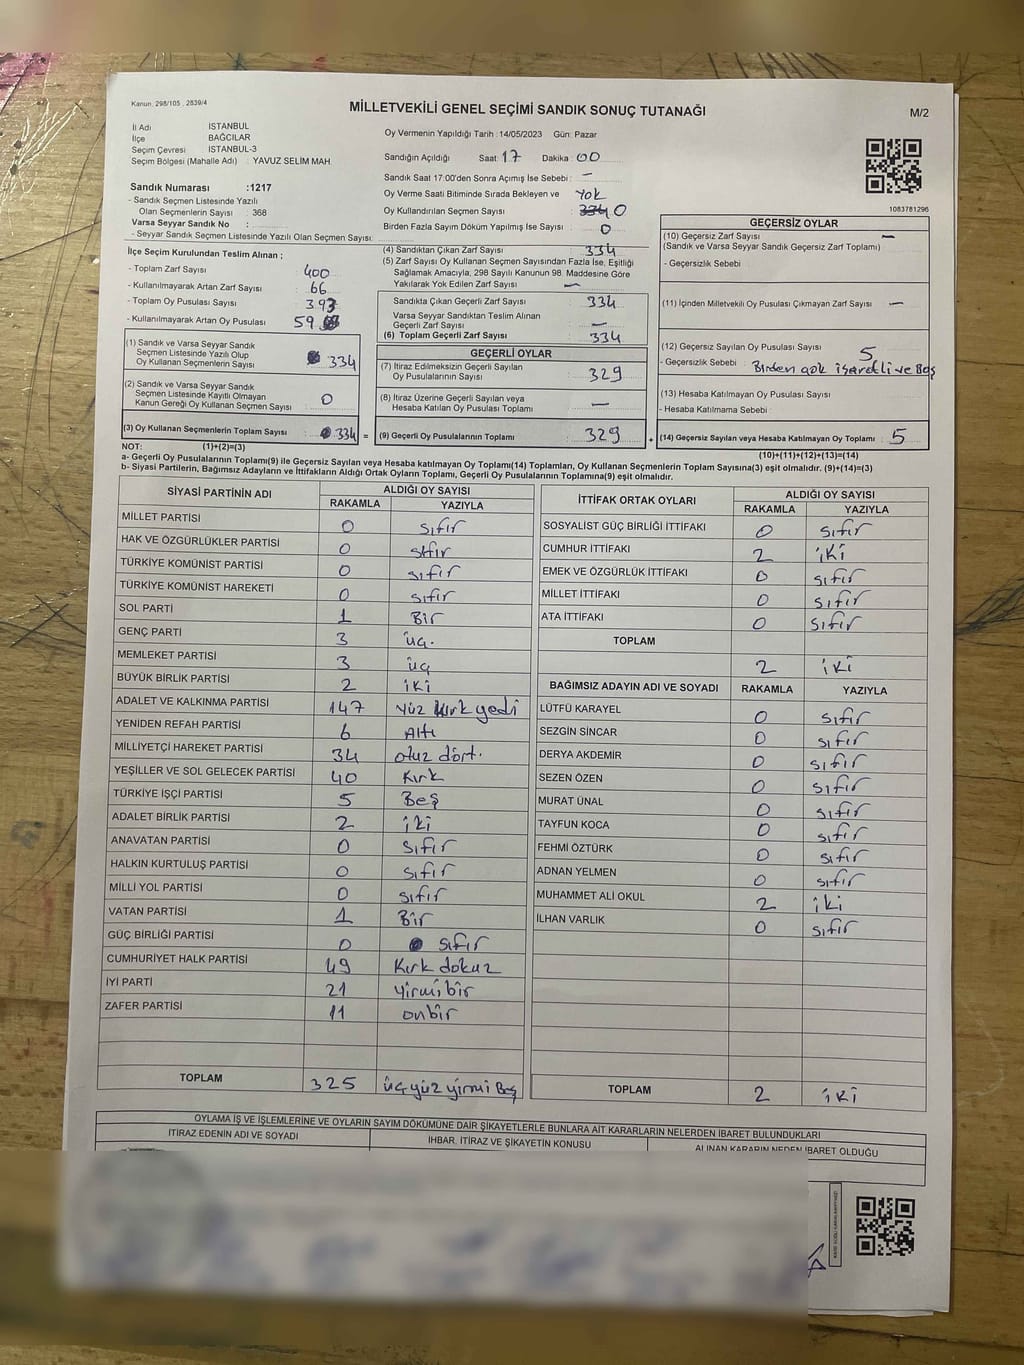 Kanun. 298/105 , 2839/4
MİLLETVEKİLİ GENEL SEÇİMİ SANDIK SONUÇ TUTANAĞI
M/2
İl Adı İSTANBUL
İlçe BAĞCILAR
Seçim Çevresi İSTANBUL-3
Seçim Bölgesi (Mahalle Adı) : YAVUZ SELİM MAH.
Oy Vermenin Yapıldığı Tarih : 14/05/2023 Gün: Pazar
Sandığın Açıldığı Saat: 17 Dakika : 00
Sandık Saat 17:00'den Sonra Açımış İse Sebebi : -
Oy Verme Saati Bitiminde Sırada Bekleyen ve Yok
Oy Kullandırılan Seçmen Sayısı : 0
Birden Fazla Sayım Döküm Yapılmış İse Sayısı : 0
1083781296
Sandık Numarası :1217
- Sandık Seçmen Listesinde Yazılı
Olan Seçmenlerin Sayısı : 368
Varsa Seyyar Sandık No :
- Seyyar Sandık Seçmen Listesinde Yazılı Olan Seçmen Sayısı:
İlçe Seçim Kurulundan Teslim Alınan ;
- Toplam Zarf Sayısı : 400
- Kullanılmayarak Artan Zarf Sayısı : 66
- Toplam Oy Pusulası Sayısı : 393
- Kullanılmayarak Artan Oy Pusulası : 59
(1) Sandık ve Varsa Seyyar Sandık
Seçmen Listesinde Yazılı Olup
Oy Kullanan Seçmenlerin Sayısı : 334
(2) Sandık ve Varsa Seyyar Sandık
Seçmen Listesinde Kayıtlı Olmayan
Kanun Gereği Oy Kullanan Seçmen Sayısı : 0
(3) Oy Kullanan Seçmenlerin Toplam Sayısı : 334 =
(4) Sandıktan Çıkan Zarf Sayısı : 334
(5) Zarf Sayısı Oy Kullanan Seçmen Sayısından Fazla İse, Eşitliği
Sağlamak Amacıyla, 298 Sayılı Kanunun 98. Maddesine Göre
Yakılarak Yok Edilen Zarf Sayısı : -
Sandıkta Çıkan Geçerli Zarf Sayısı : 334
Varsa Seyyar Sandıktan Teslim Alınan
Geçerli Zarf Sayısı : -
(6) Toplam Geçerli Zarf Sayısı : 334
GEÇERLİ OYLAR
(7) İtiraz Edilmeksizin Geçerli Sayılan
Oy Pusulalarının Sayısı : 329
(8) İtiraz Üzerine Geçerli Sayılan veya
Hesaba Katılan Oy Pusulası Toplamı : -
(9) Geçerli Oy Pusulalarının Toplamı : 329 +
GEÇERSİZ OYLAR
(10) Geçersiz Zarf Sayısı : -
(Sandık ve Varsa Seyyar Sandık Geçersiz Zarf Toplamı)
- Geçersizlik Sebebi :
(11) İçinden Milletvekili Oy Pusulası Çıkmayan Zarf Sayısı : -
(12) Geçersiz Sayılan Oy Pusulası Sayısı : 5
- Geçersizlik Sebebi : Birden çok işaretli ve Boş
(13) Hesaba Katılmayan Oy Pusulası Sayısı :
- Hesaba Katılmama Sebebi :
(14) Geçersiz Sayılan veya Hesaba Katılmayan Oy Toplamı : 5
NOT: (1)+(2)=(3) (10)+(11)+(12)+(13)=(14)
a- Geçerli Oy Pusulalarının Toplamı(9) ile Geçersiz Sayılan veya Hesaba katılmayan Oy Toplamı(14) Toplamları, Oy Kullanan Seçmenlerin Toplam Sayısına(3) eşit olmalıdır. (9)+(14)=(3)
b- Siyasi Partilerin, Bağımsız Adayların ve İttifakların Aldığı Ortak Oyların Toplamı, Geçerli Oy Pusulalarının Toplamına(9) eşit olmalıdır.
SİYASİ PARTİNİN ADI ALDIĞI OY SAYISI
RAKAMLA YAZIYLA
MİLLET PARTİSİ 0 sıfır
HAK VE ÖZGÜRLÜKLER PARTİSİ 0 sıfır
TÜRKİYE KOMÜNİST PARTİSİ 0 sıfır
TÜRKİYE KOMÜNİST HAREKETİ 0 sıfır
SOL PARTİ 1 Bir
GENÇ PARTİ 3 üç.
MEMLEKET PARTİSİ 3 üç
BÜYÜK BİRLİK PARTİSİ 2 iki
ADALET VE KALKINMA PARTİSİ 147 yüz kırk yedi
YENİDEN REFAH PARTİSİ 6 Altı
MİLLİYETÇİ HAREKET PARTİSİ 34 otuz dört.
YEŞİLLER VE SOL GELECEK PARTİSİ 40 Kırk
TÜRKİYE İŞÇİ PARTİSİ 5 Beş
ADALET BİRLİK PARTİSİ 2 iki
ANAVATAN PARTİSİ 0 sıfır
HALKIN KURTULUŞ PARTİSİ 0 sıfır
MİLLİ YOL PARTİSİ 0 sıfır
VATAN PARTİSİ 1 Bir
GÜÇ BİRLİĞİ PARTİSİ 0 sıfır
CUMHURİYET HALK PARTİSİ 49 Kırk dokuz
İYİ PARTİ 21 yirmi bir
ZAFER PARTİSİ 11 onbir
TOPLAM 325 üçyüz yirmi Beş
İTTİFAK ORTAK OYLARI ALDIĞI OY SAYISI
RAKAMLA YAZIYLA
SOSYALİST GÜÇ BİRLİĞİ İTTİFAKI 0 sıfır
CUMHUR İTTİFAKI 2 iki
EMEK VE ÖZGÜRLÜK İTTİFAKI 0 sıfır
MİLLET İTTİFAKI 0 sıfır
ATA İTTİFAKI 0 sıfır
TOPLAM
2 iki
BAĞIMSIZ ADAYIN ADI VE SOYADI RAKAMLA YAZIYLA
LÜTFÜ KARAYEL 0 sıfır
SEZGİN SİNCAR 0 sıfır
DERYA AKDEMİR 0 sıfır
SEZEN ÖZEN 0 sıfır
MURAT ÜNAL 0 sıfır
TAYFUN KOCA 0 sıfır
FEHMİ ÖZTÜRK 0 sıfır
ADNAN YELMEN 0 sıfır
MUHAMMET ALİ OKUL 2 iki
İLHAN VARLIK 0 sıfır
TOPLAM 2 iki
OYLAMA İŞ VE İŞLEMLERİNE VE OYLARIN SAYIM DÖKÜMÜNE DAİR ŞİKAYETLERLE BUNLARA AİT KARARLARIN NELERDEN İBARET BULUNDUKLARI
İTİRAZ EDENİN ADI VE SOYADI İHBAR, İTİRAZ VE ŞİKAYETİN KONUSU ALINAN KARARIN NEDEN İBARET OLDUĞU